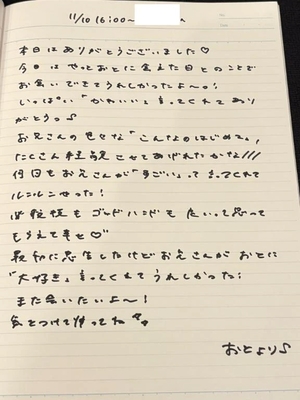 11/10 16:00~
本日はありがとうございました♡
今日はやっとおとに会えた日とのことで
お会いできてうれしかったよ〜!
いっぱい「かわいい」言ってくれてあり
がとうっ♪
お兄さんの色々な「こんなのはじめて」、
たくさん経験させてあげれたかな///
何回もお兄さんが「すごい」って言ってくれて
ルンルンだった!
ゴッドハンドも
もらえて幸せ♡
最初に恋生したけどお兄さんがおとに
「大好き」言ってくれてうれしかった!
また会いたいよ〜!
気をつけて帰ってね
おとより♪